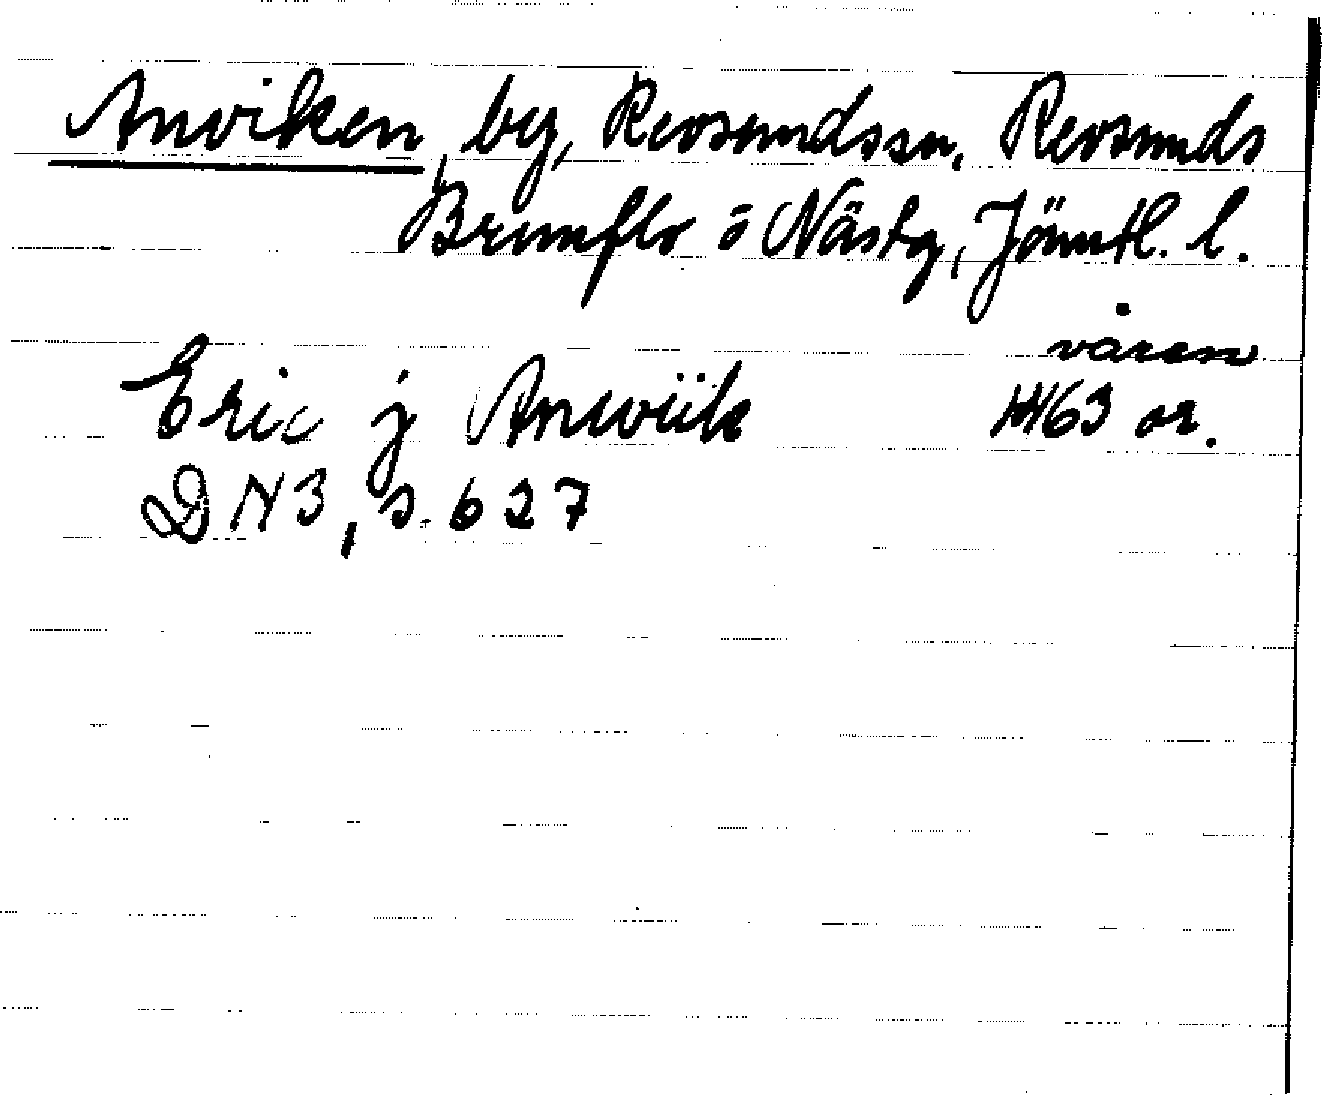 Anviken, by, Revsundssn, Revsunds
Brunflo o Näs tg, Jämtl. l.
våren
Eric j Anwiik 1463 or.
DN3, s. 627